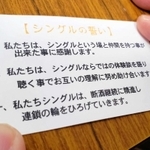 【シングルの誓い】
私たちは、シングルという魂と仲間を持つ事が
出来た事に感謝します。
私たちは、シングルならではの体験談を語り
聴く事でお互いの理解に努め助け合います
一、私たちシングルは、断酒継続に精進し
連鎖の輪をひろげていきます。